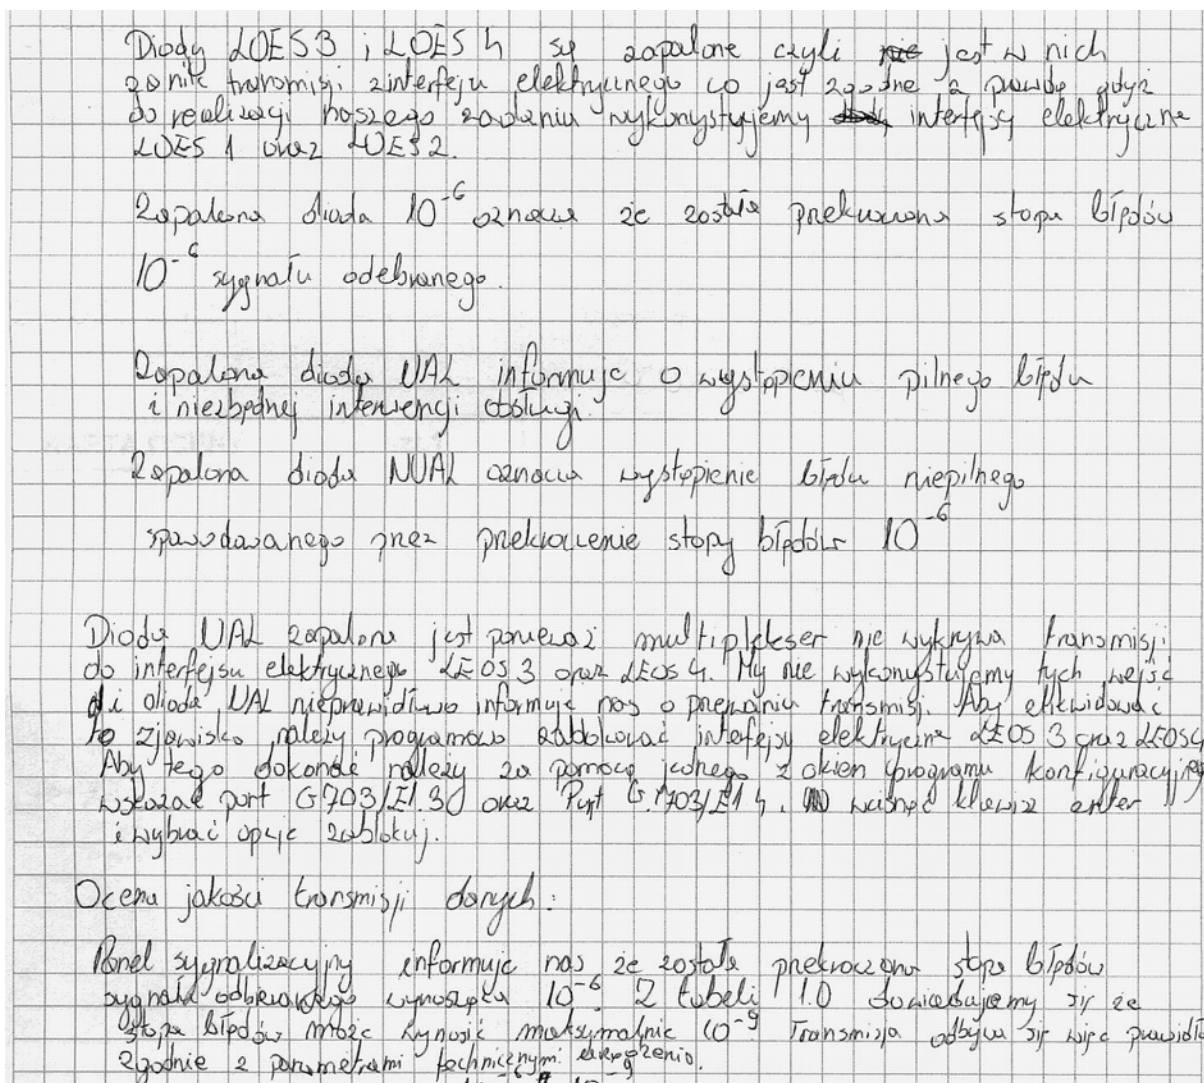 Diody LOES3 i LOES4 są zapalone czyli nie jest w nich
zanik transmisji z interfeju elektrycznego co jest zgodne z prawdą gdyż
do realizacji naszego zadania wykorzystujemy interfejsy elektryczne
LOES1 oraz LOES2.
Zapalona dioda 10^-6 oznacza że została przekroczona stopa błędów
10^-6 sygnału odebranego.
Zapalona dioda UAL informuje o wystąpieniu pilnego błędu
i niezbędnej interwencji obsługi.
Zapalona dioda NUAL oznacza wystąpienie błędu niepilnego
spowodowanego przez przekroczenie stopy błędów 10^-6
Dioda UAL zapalona jest ponieważ multiplekser nie wykrywa transmisji
do interfejsu elektrycznego LEOS3 oraz LEOS4. My nie wykorzystujemy tych wejść
i dioda UAL nieprawidłowo informuje nas o przerwaniu transmisji. Aby zlikwidować
to zjawisko należy programowo zablokować interfejsy elektryczne LEOS3 oraz LEOS4
Aby tego dokonać należy za pomocą jednego z okien programu konfiguracyjnego
wskazać port G703/E1.3 oraz Port G.703/E1 4. wcisnąć klawisz enter
i wybrać opcję zablokuj.
Ocena jakości transmisji danych:
Panel sygnalizacyjny informuje nas że została przekroczona stopa błędów
sygnału odbieranego wynosząca 10^-6. Z tabeli 1.0 dowiadujemy się że
stopa błędów może wynosić maksymalnie 10^-9 Transmisja odbywa się więc
zgodnie z parametrami technicznymi